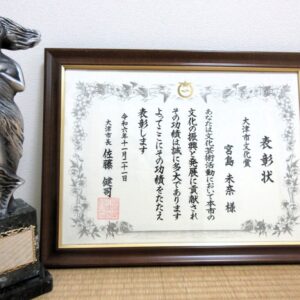 表彰状
大津市文化賞
宮島 未奈 様
あなたは文化芸術活動において本市の
文化の振興と発展に貢献され
その功績は誠に多大であります
よってここにその功績をたたえ
表彰します
令和六年十一月二十一日
大津市長 佐藤 健司